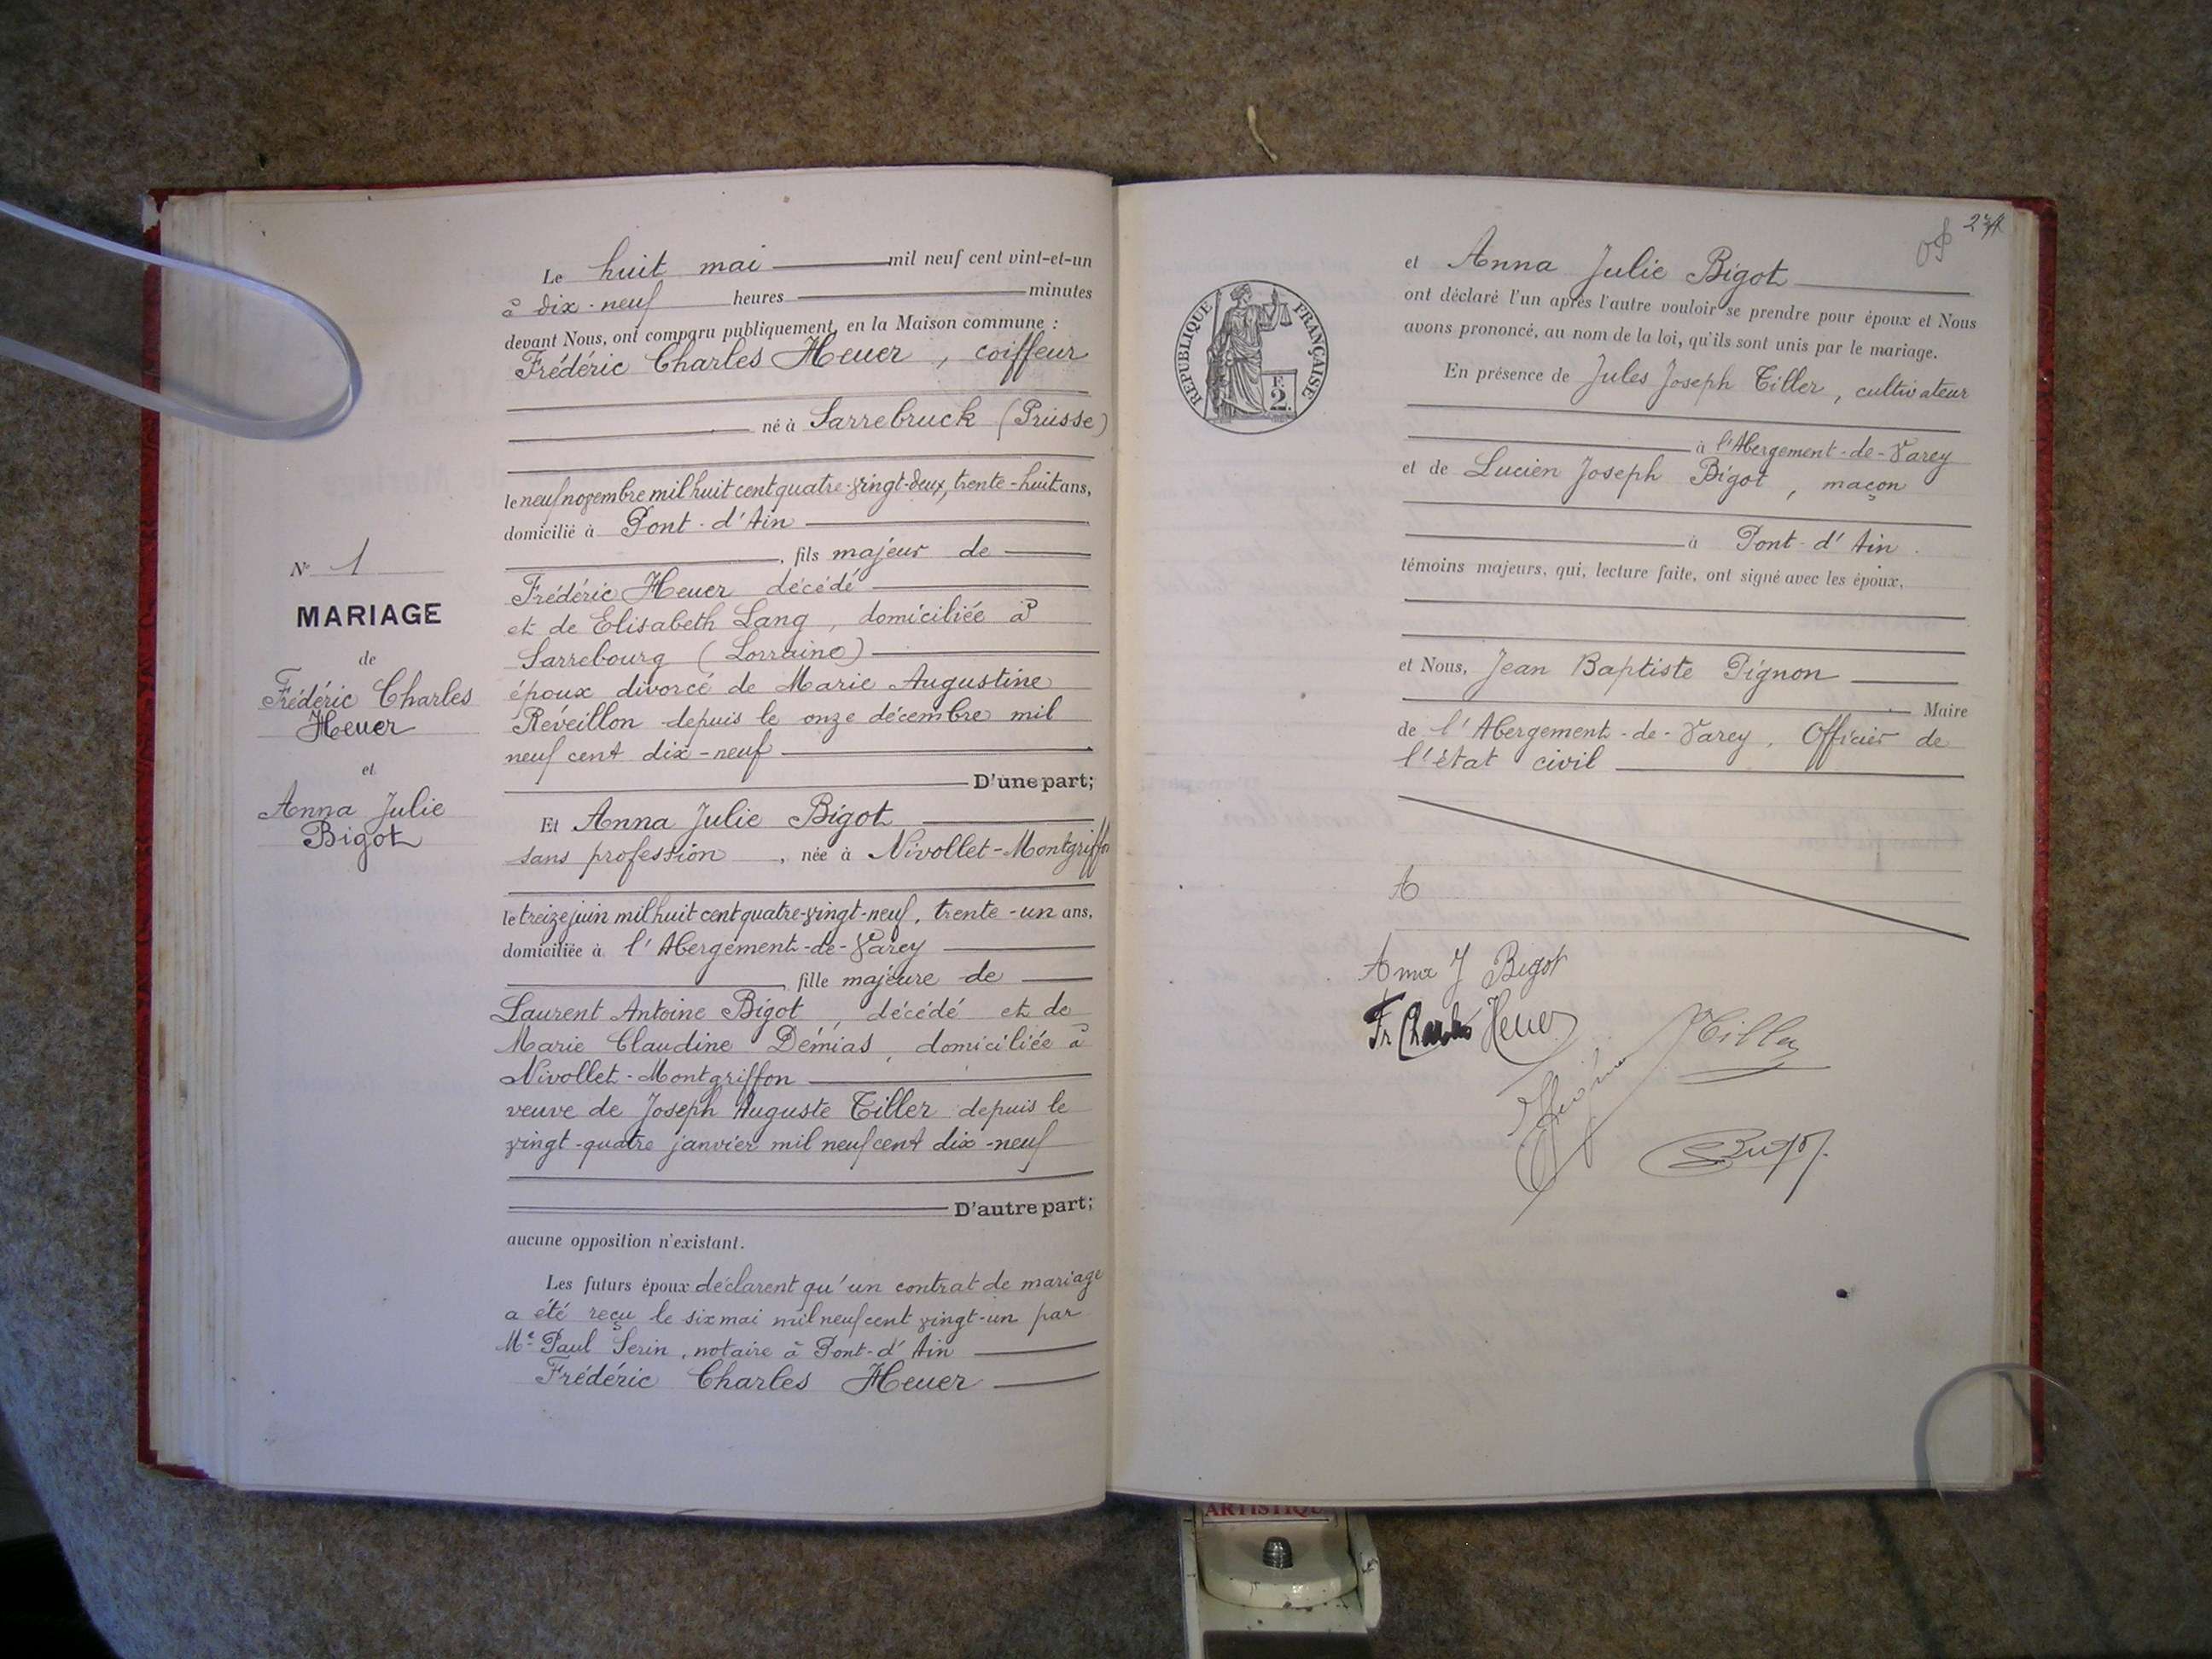 N° 1
MARIAGE
de
Frédéric Charles
Heuer
et
Anna Julie
Bigot
Le huit mai mil neuf cent vint-et-un
à dix-neuf heures minutes
devant Nous, ont comparu publiquement, en la Maison commune :
Frédéric Charles Heuer, coiffeur
né à Sarrebruck (Prusse)
le neuf novembre mil huit cent quatre-vingt-deux, trente-huit ans,
domicilié à Pont-d'Ain
, fils majeur de
Frédéric Heuer décédé
et de Elisabeth Lang, domiciliée à
Sarrebourg (Lorraine)
époux divorcé de Marie Augustine
Réveillon depuis le onze décembre mil
neuf cent dix-neuf
D'une part;
Et Anna Julie Bigot
sans profession, née à Nivollet-Montgriffon
le treize juin mil huit cent quatre-vingt-neuf, trente-un ans,
domiciliée à l'Abergement-de-Varey
, fille majeure de
Laurent Antoine Bigot, décédé et de
Marie Claudine Démias, domiciliée à
Nivollet-Montgriffon
veuve de Joseph Auguste Tiller depuis le
vingt-quatre janvier mil neuf cent dix-neuf
D'autre part;
aucune opposition n'existant.
Les futurs époux déclarent qu'un contrat de mariage
a été reçu le six mai mil neuf cent vingt-un par
Me Paul Serin, notaire à Pont-d'Ain
Frédéric Charles Heuer
RÉPUBLIQUE FRANÇAISE
F.
2.
et Anna Julie Bigot
ont déclaré l'un après l'autre vouloir se prendre pour époux et Nous
avons prononcé, au nom de la loi, qu'ils sont unis par le mariage.
En présence de Jules Joseph Tiller, cultivateur
à l'Abergement-de-Varey
et de Lucien Joseph Bigot, maçon
à Pont-d'Ain.
témoins majeurs, qui, lecture faite, ont signé avec les époux,
et Nous, Jean Baptiste Pignon
Maire
de l'Abergement-de-Varey, Officier de
l'état civil
A
Anna J Bigot
Fr Charles Heuer
Tiller
Pignon
Bigot
ARTISTIQU